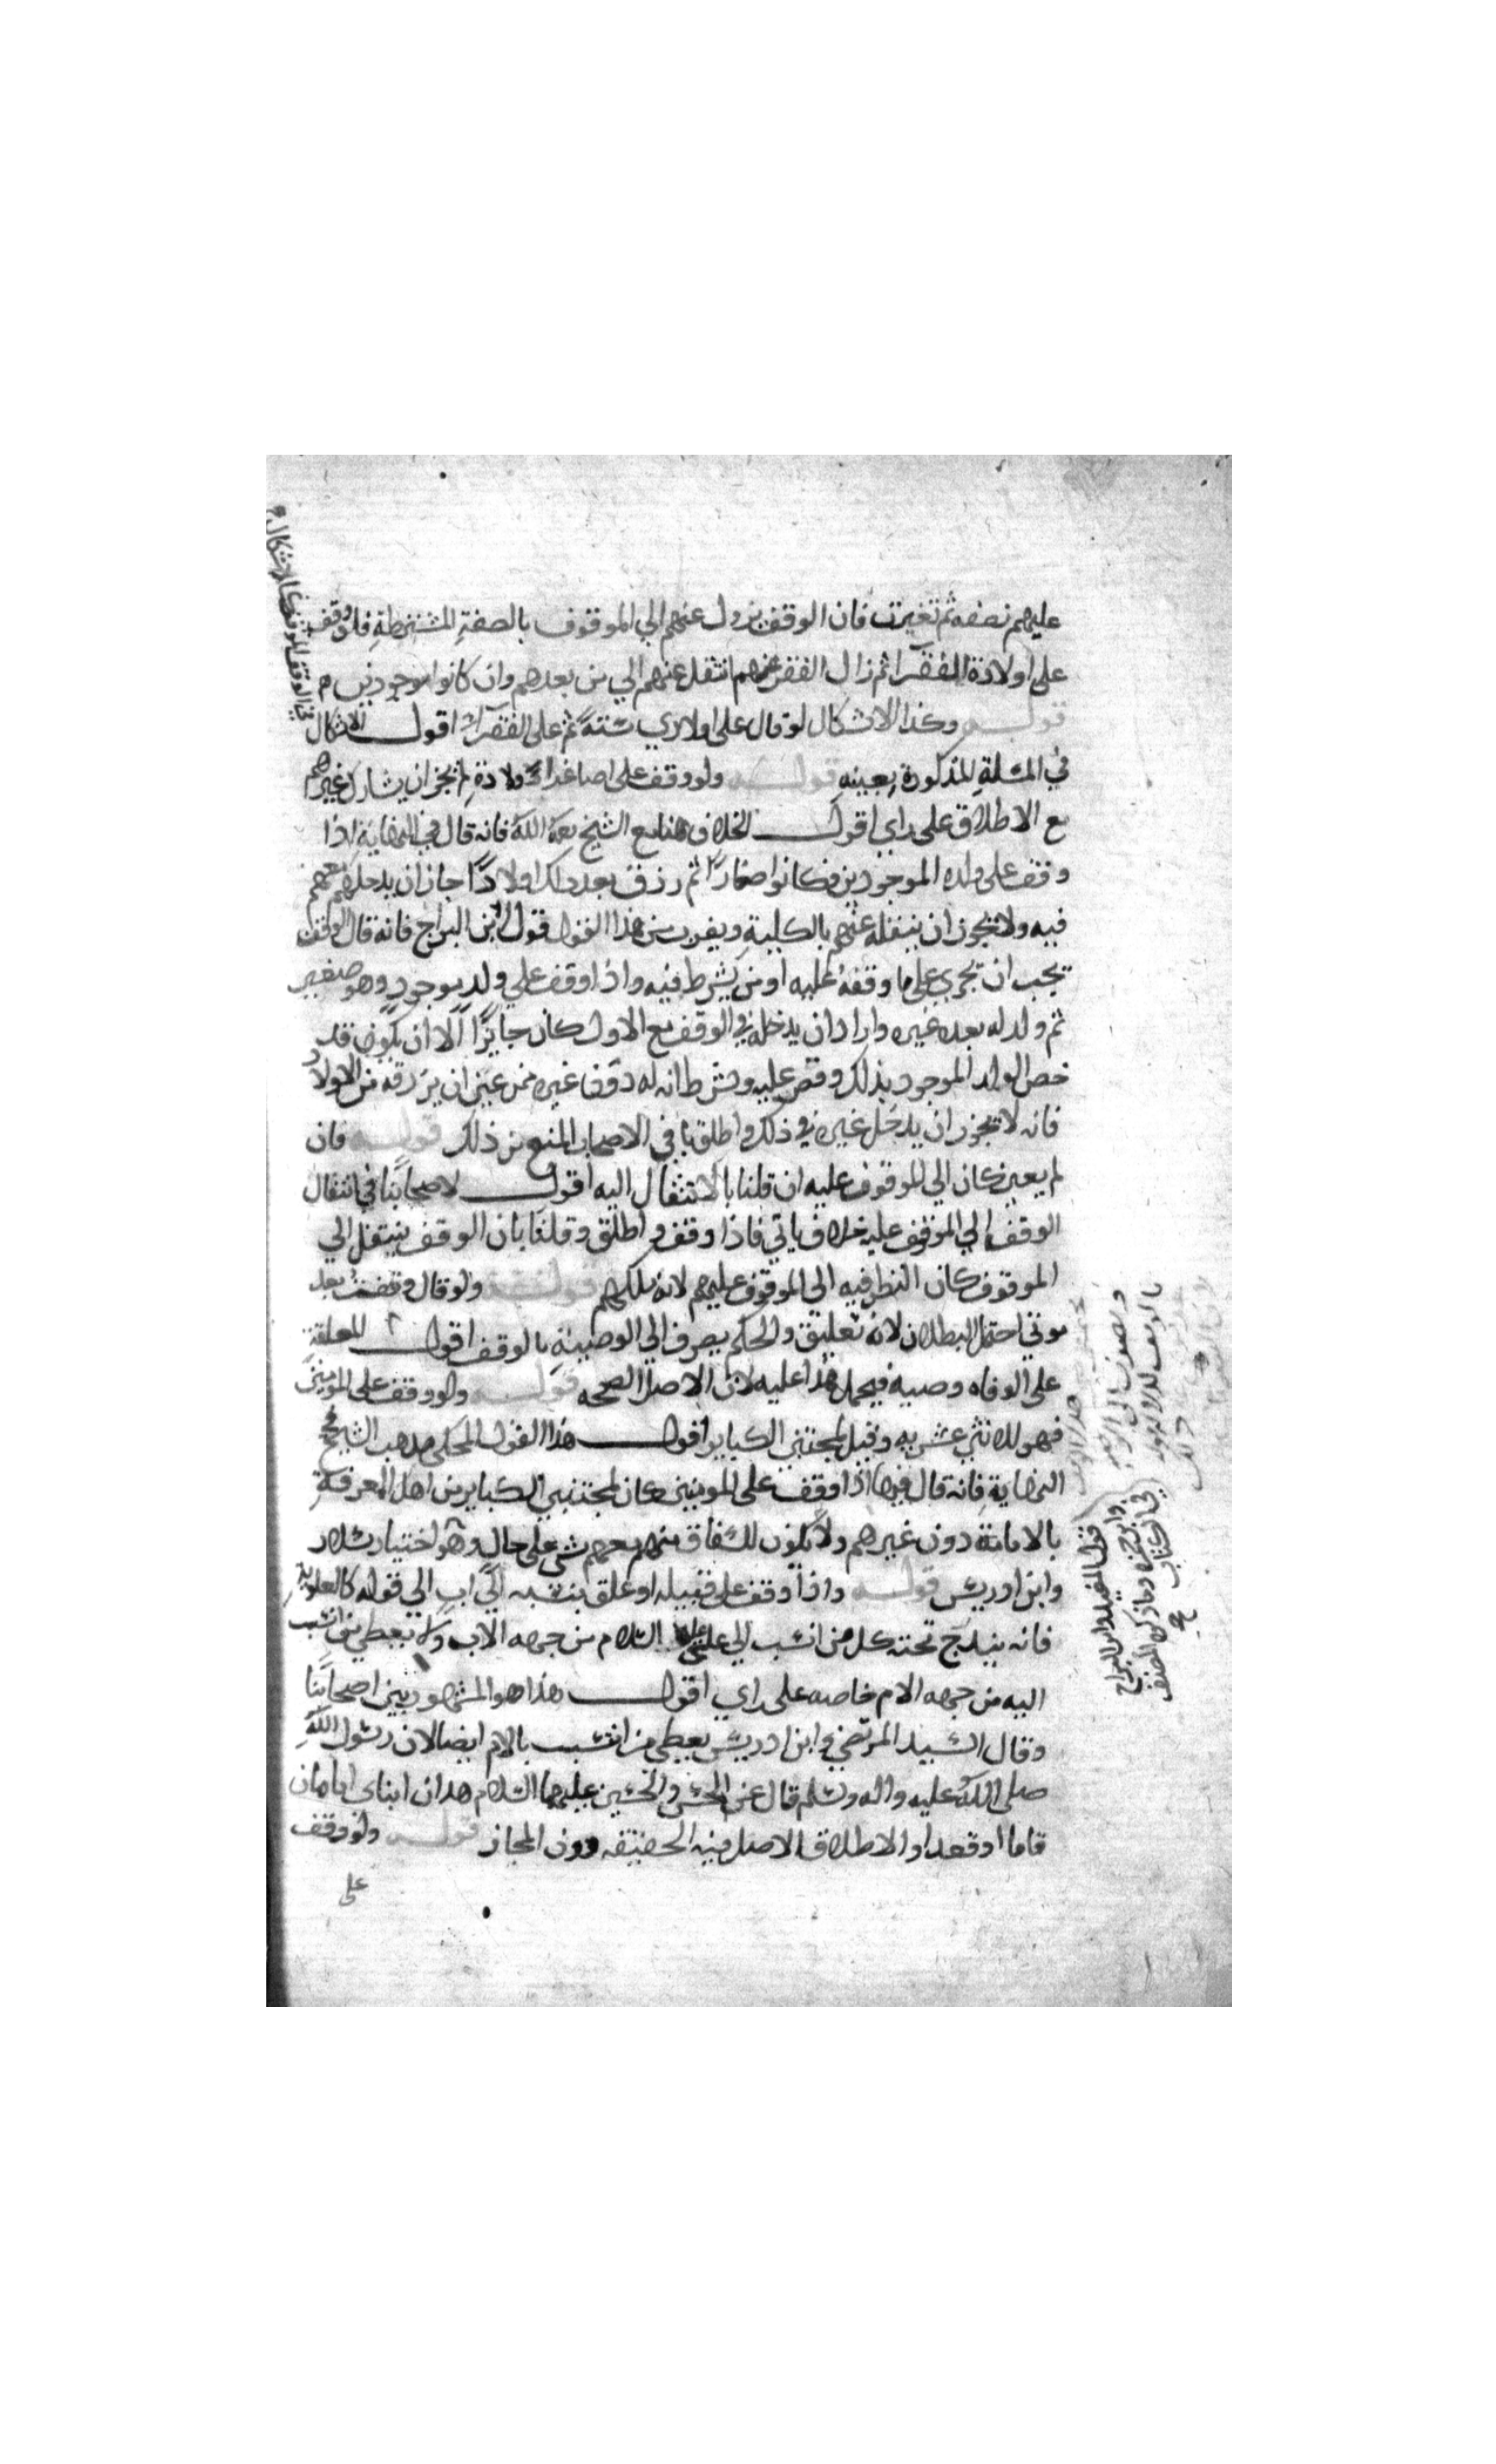 عليهم نصفه ثم تغيرت فان الوقف يزول عنهم الي الموقوف بالصفةِ المشترطةِ فلو وقف
على اولادة الفقرآ ثم زال الفقر عنهم انتقل عنهم الي من بعدهم وان كانوا موجودين
قولـــه وكذا الاشكال لو قال على اولادي سنةً ثم على الفقرآء اقولـــ الاشكال
في المسئلةِ المذكورة بعينه قولـــه ولو وقف على اصاغر اولادة لم يجز ان يشارك غيرهم
مع الاطلاق على راي اقولـــ الخلاف هنا مع الشيخ رحمة الله فانه قال في النهاية اذا
وقف على ولده الموجودين وكانوا صغارًا ثم رزق بعد ذلك اولادًا جاز ان يدخلهم معهم
فيه ولا يجوز ان ينقله عنهم بالكليةِ ويقرب من هذا القول قول ابن البراج فانه قال الوقف
يجب ان يجري على ما وقفهُ عليه او من يشرط فيه واذا وقف علي ولدٍ موجودٍ وهو صغير
ثم ولد له بعده غيره واراد ان يدخله في الوقف مع الاول كان جايزًا الا ان يكون قد
خص الولد الموجود بذلك وقصر عليه وشرط انه له دون غيره ممن عسى ان يرزقه من الاولاد
فانه لا يجوز ان يدخل غيره في ذلك واطلق باقي الاصحاب المنع من ذلك قولـــه فان
لم يعين كان الي الموقوف عليه ان قلنا بالانتقال اليه اقولـــ لاصحابنا في انتقال
الوقف الي الموقوف عليه خلاف ياتي فاذا وقف و اطلق وقلنا بان الوقف ينتقل الي
الموقوف كان النظر فيه الى الموقوف عليهم لانه ملكهم قولـــه ولو قال وقفت بعد
موتي احتمل البطلان لانه تعليق والحكم بصرفه الي الوصيةِ بالوقف اقولـــ المعلقة
على الوفاه وصيه فيحمل هذا عليه لان الاصل الصحه قولـــه ولو وقف على المومنين
فهو للاثني عشريه وقيل لمجتنبي الكباير اقولـــ هذا القول المحكى مذهب الشيخ في
النهايةِ فانه قال فيها اذا وقف على المومنين كان لمجتنبي الكباير من اهل المعرفةِ
بالامامة دون غيرهم ولا يكون للفساق منهم معهم شي على حال وهو اختيار سلار
وابن ادريس قولـــه واذا وقف على قبيله او علق بنسبه الي ابٍ الي قوله كالعلويةِ
فانه يندرج تحته كل من انتسب الي علي عليه السلام من جهه الاب ولا يعطي من انتسب
اليه من جهه الام خاصه على راي اقولـــ هذا هو المشهور بين اصحابنا
وقال السيد المرتضي وابن ادريس يعطي من انتسب بالام ايضا لان رسول الله
صلى الله عليه واله وسلم قال عن الحسن والحسين عليهما السلام هدان ابناى امامان
قاما او قعدا والاطلاق الاصل فيه الحقيقه دون المجاز قولـــه ولو وقف
على
قول المفيد وابن البراج
وابن حمزه وما ذكره المصنف
في الكتاب